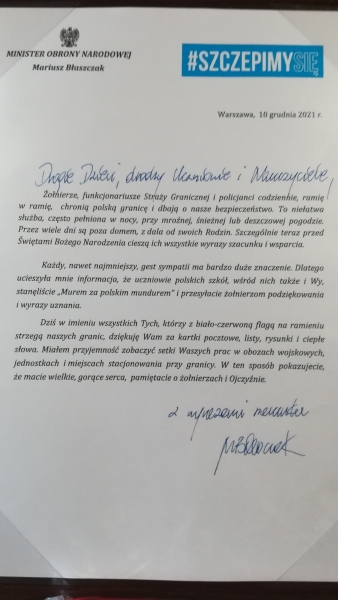 MINISTER OBRONY NARODOWEJ
Mariusz Błaszczak
#SZCZEPIMYSIĘ
Warszawa, 10 grudnia 2021 r.
Drogie Dzieci, drodzy Uczniowie i Nauczyciele,
Żołnierze, funkcjonariusze Straży Granicznej i policjanci codziennie, ramię
w ramię, chronią polską granicę i dbają o nasze bezpieczeństwo. To niełatwa
służba, często pełniona w nocy, przy mroźnej, śnieżnej lub deszczowej pogodzie.
Przez wiele dni są poza domem, z dala od swoich Rodzin. Szczególnie teraz przed
Świętami Bożego Narodzenia cieszą ich wszystkie wyrazy szacunku i wsparcia.
Każdy, nawet najmniejszy, gest sympatii ma bardzo duże znaczenie. Dlatego
ucieszyła mnie informacja, że uczniowie polskich szkół, wśród nich także i Wy,
stanęliście „Murem za polskim mundurem" i przesyłacie żołnierzom podziękowania
i wyrazy uznania.
Dziś w imieniu wszystkich Tych, którzy z biało-czerwoną flagą na ramieniu
strzegą naszych granic, dziękuję Wam za kartki pocztowe, listy, rysunki i ciepłe
słowa. Miałem przyjemność zobaczyć setki Waszych prac w obozach wojskowych,
jednostkach i miejscach stacjonowania przy granicy. W ten sposób pokazujecie,
że macie wielkie, gorące serca, pamiętacie o żołnierzach i Ojczyźnie.
z wyrazami szacunku